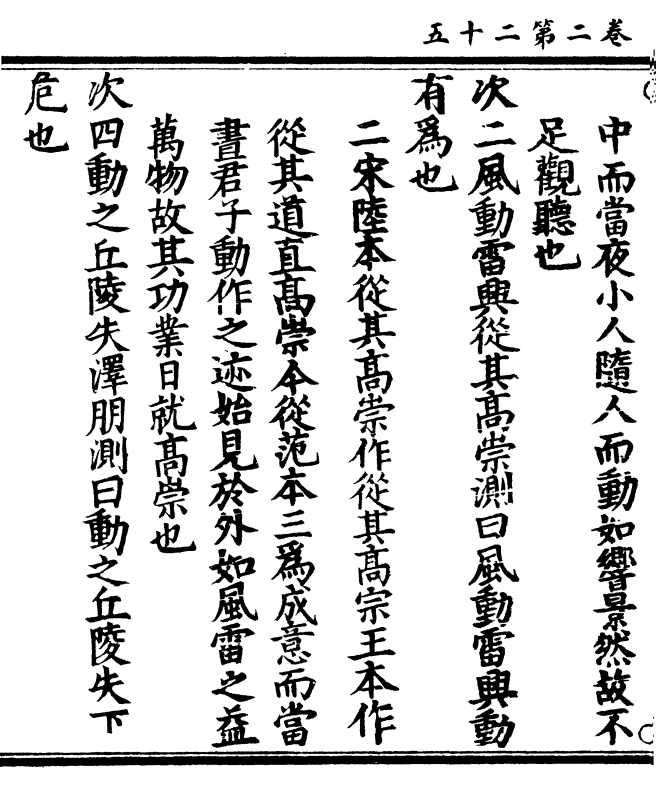 卷二第二十五
中而當夜小人隨人而動如響景然故不
足觀聽也
次二風動雷興從其高崇測曰風動雷興動
有爲也
二宋陸本從其高崇作從其高宗王本作
從其道直高崇今從范本三爲成意而當
晝君子動作之迹始見於外如風雷之益
萬物故其功業日就高崇也
次四動之丘陵失澤朋測曰動之丘陵失下
危也